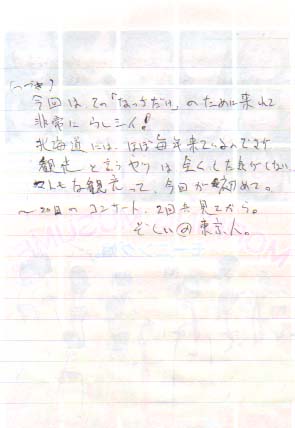 (つづき)
今回は、その「なっちだけ」のために来れて
非常にうらシイ!
北海道には、ほぼ毎年来ているのですが
観光と言うヤツは全くした気がしない
な観光って、今回が初めて。
〜2日目のコンサート、2回共見てから。
@東京人。